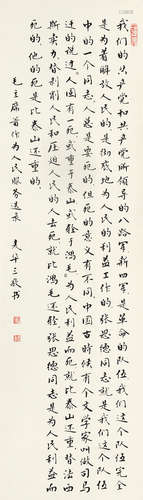 我们的共产党和共产党所领导的八路军新四军是革命的队伍我们这个队伍完全
是为着解放人民的是彻底地为人民的利益工作的张思德同志就是我们这个队伍
中的一个同志人总是要死的但死的意义有不同中国古时候有个文学家叫做司马
迁的说过人固有一死或重于泰山或轻于鸿毛为人民利益而死就比泰山还重替法西
斯卖力替剥削人民和压迫人民的人去死就比鸿毛还轻张思德同志是为人民利益而
死的他的死是比泰山还重的
毛主席著作为人民服务选
书